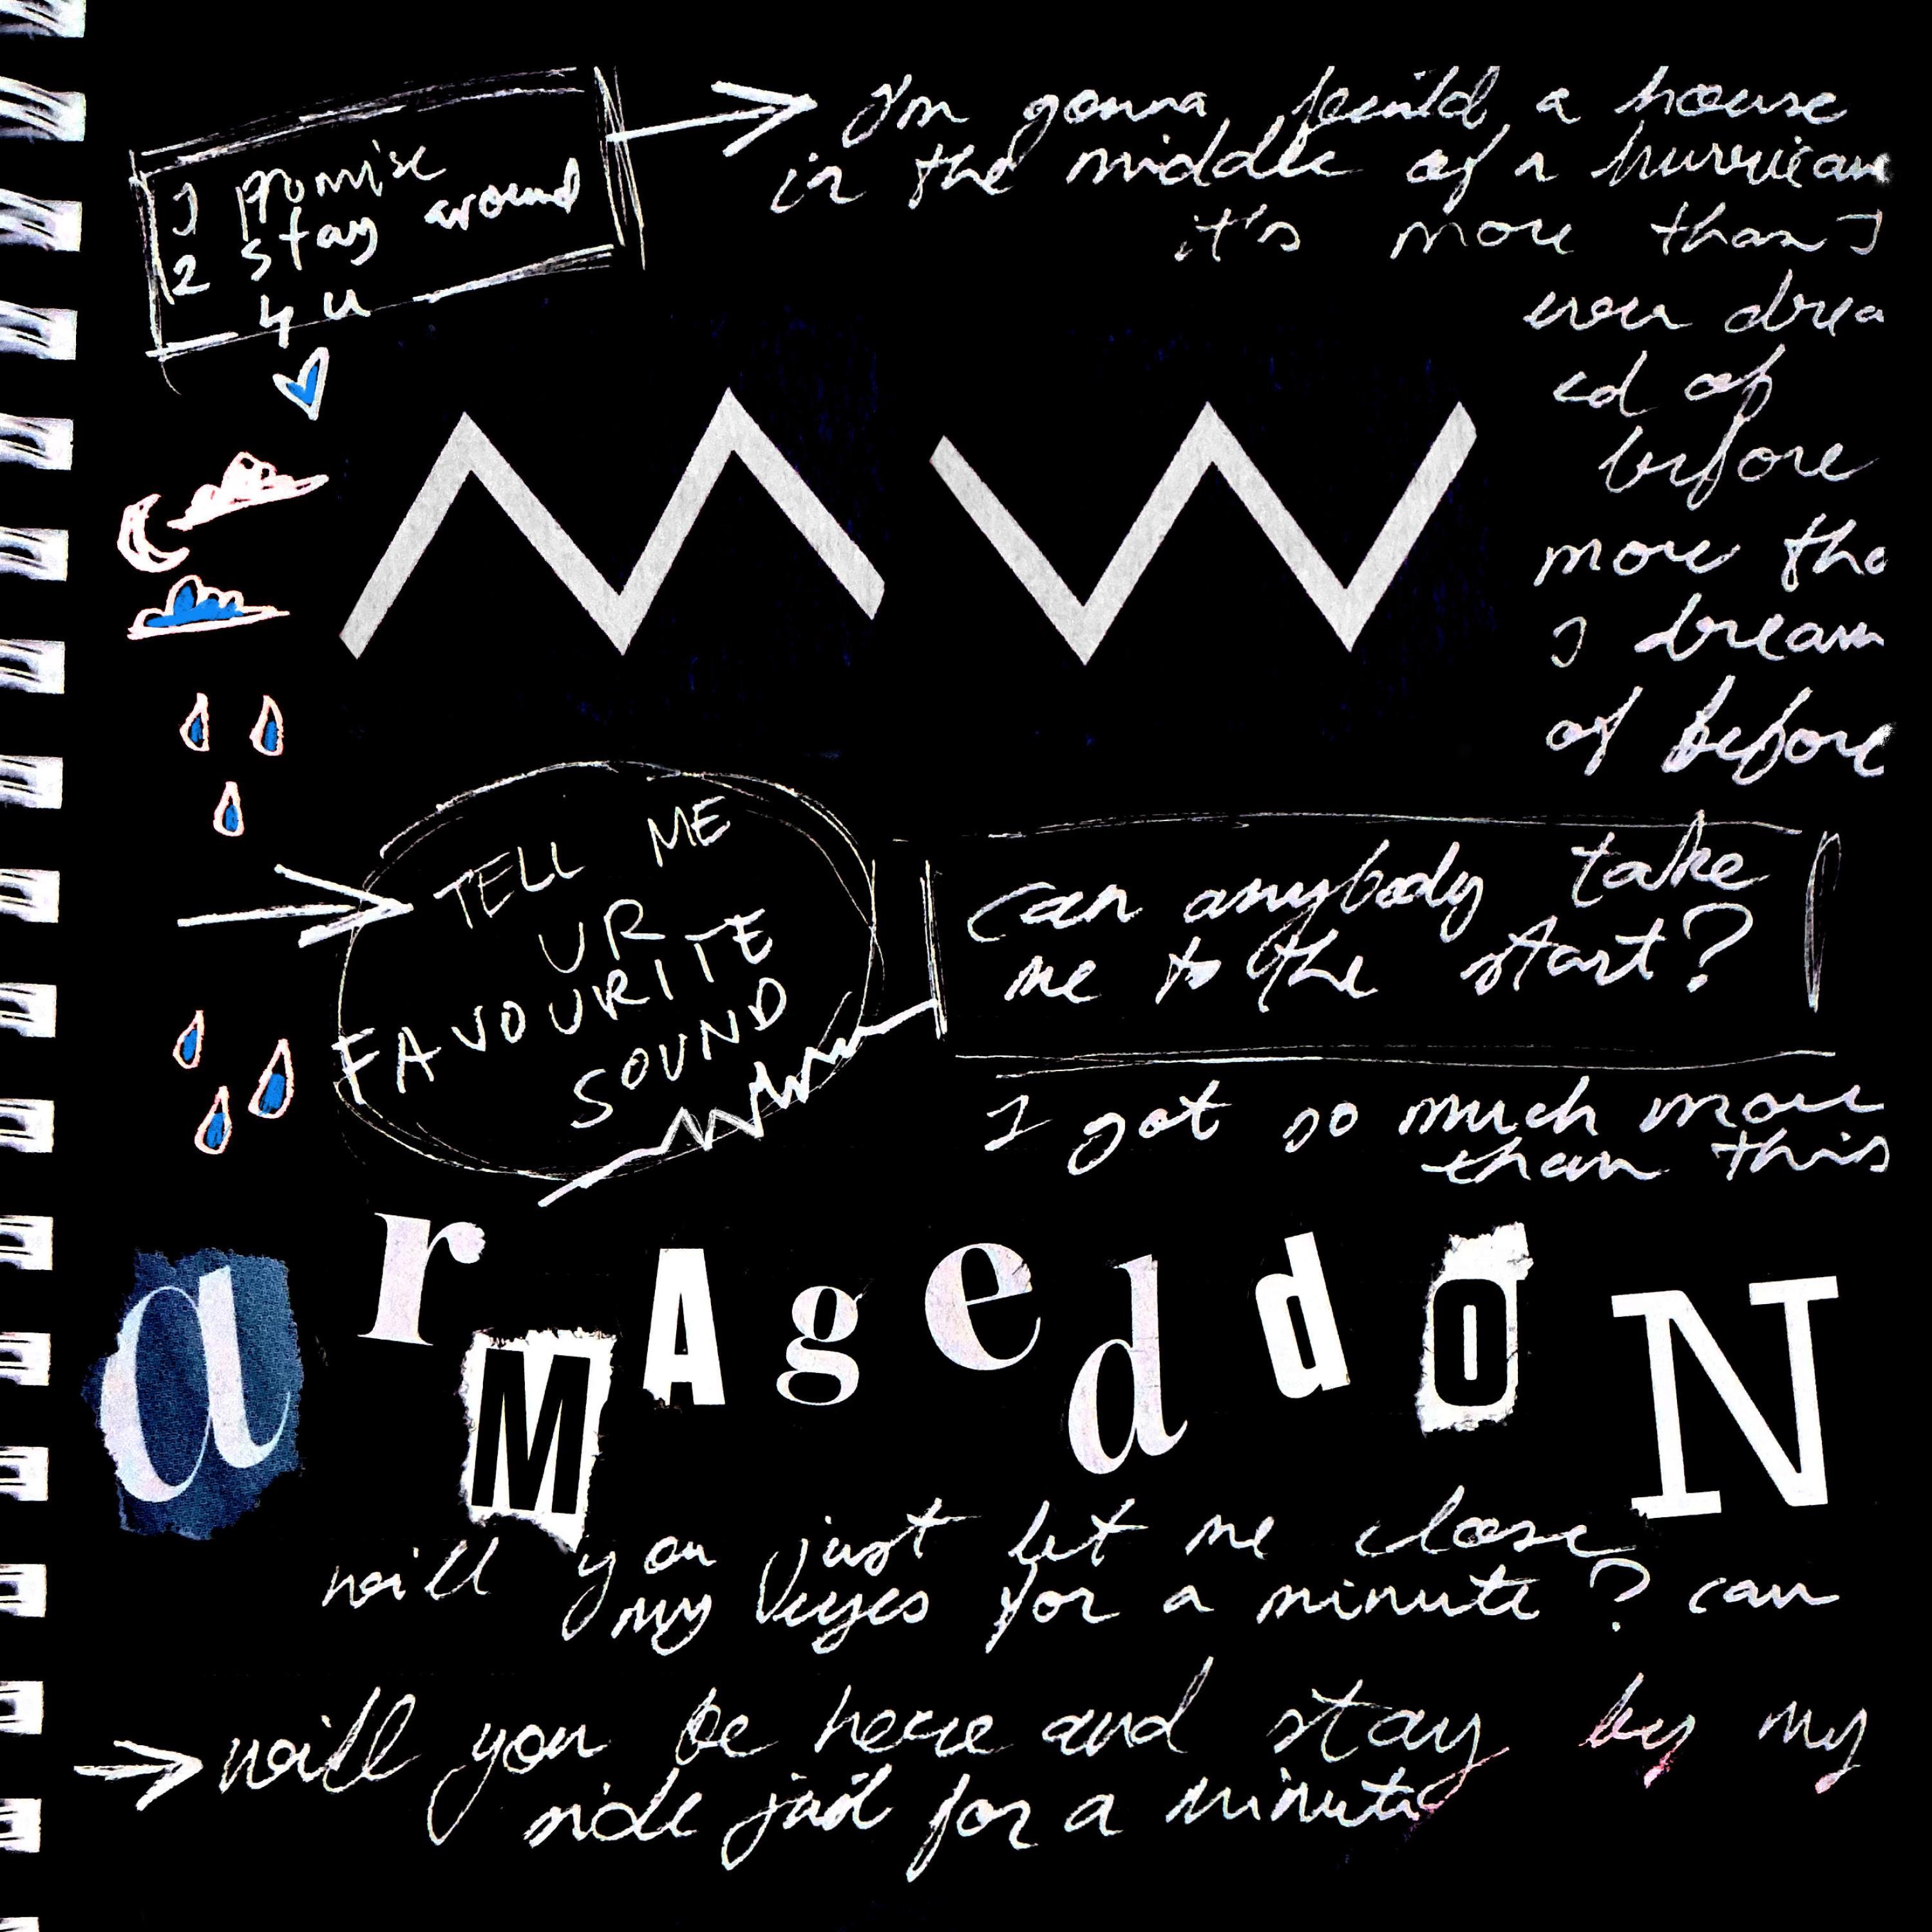 I promise
2 stay around
4 u
I'm gonna build a house
in the middle of a hurrican
it's more than I
ever drea
ed of
before
more tha
I dream
of before
MW
TELL ME
UR
FAVOURITE
SOUND
can anybody take
me to the start?
I got so much more
than this
arMAgeddON
will you just let me close
my eyes for a minute? can
will you be here and stay by my
side for a minute